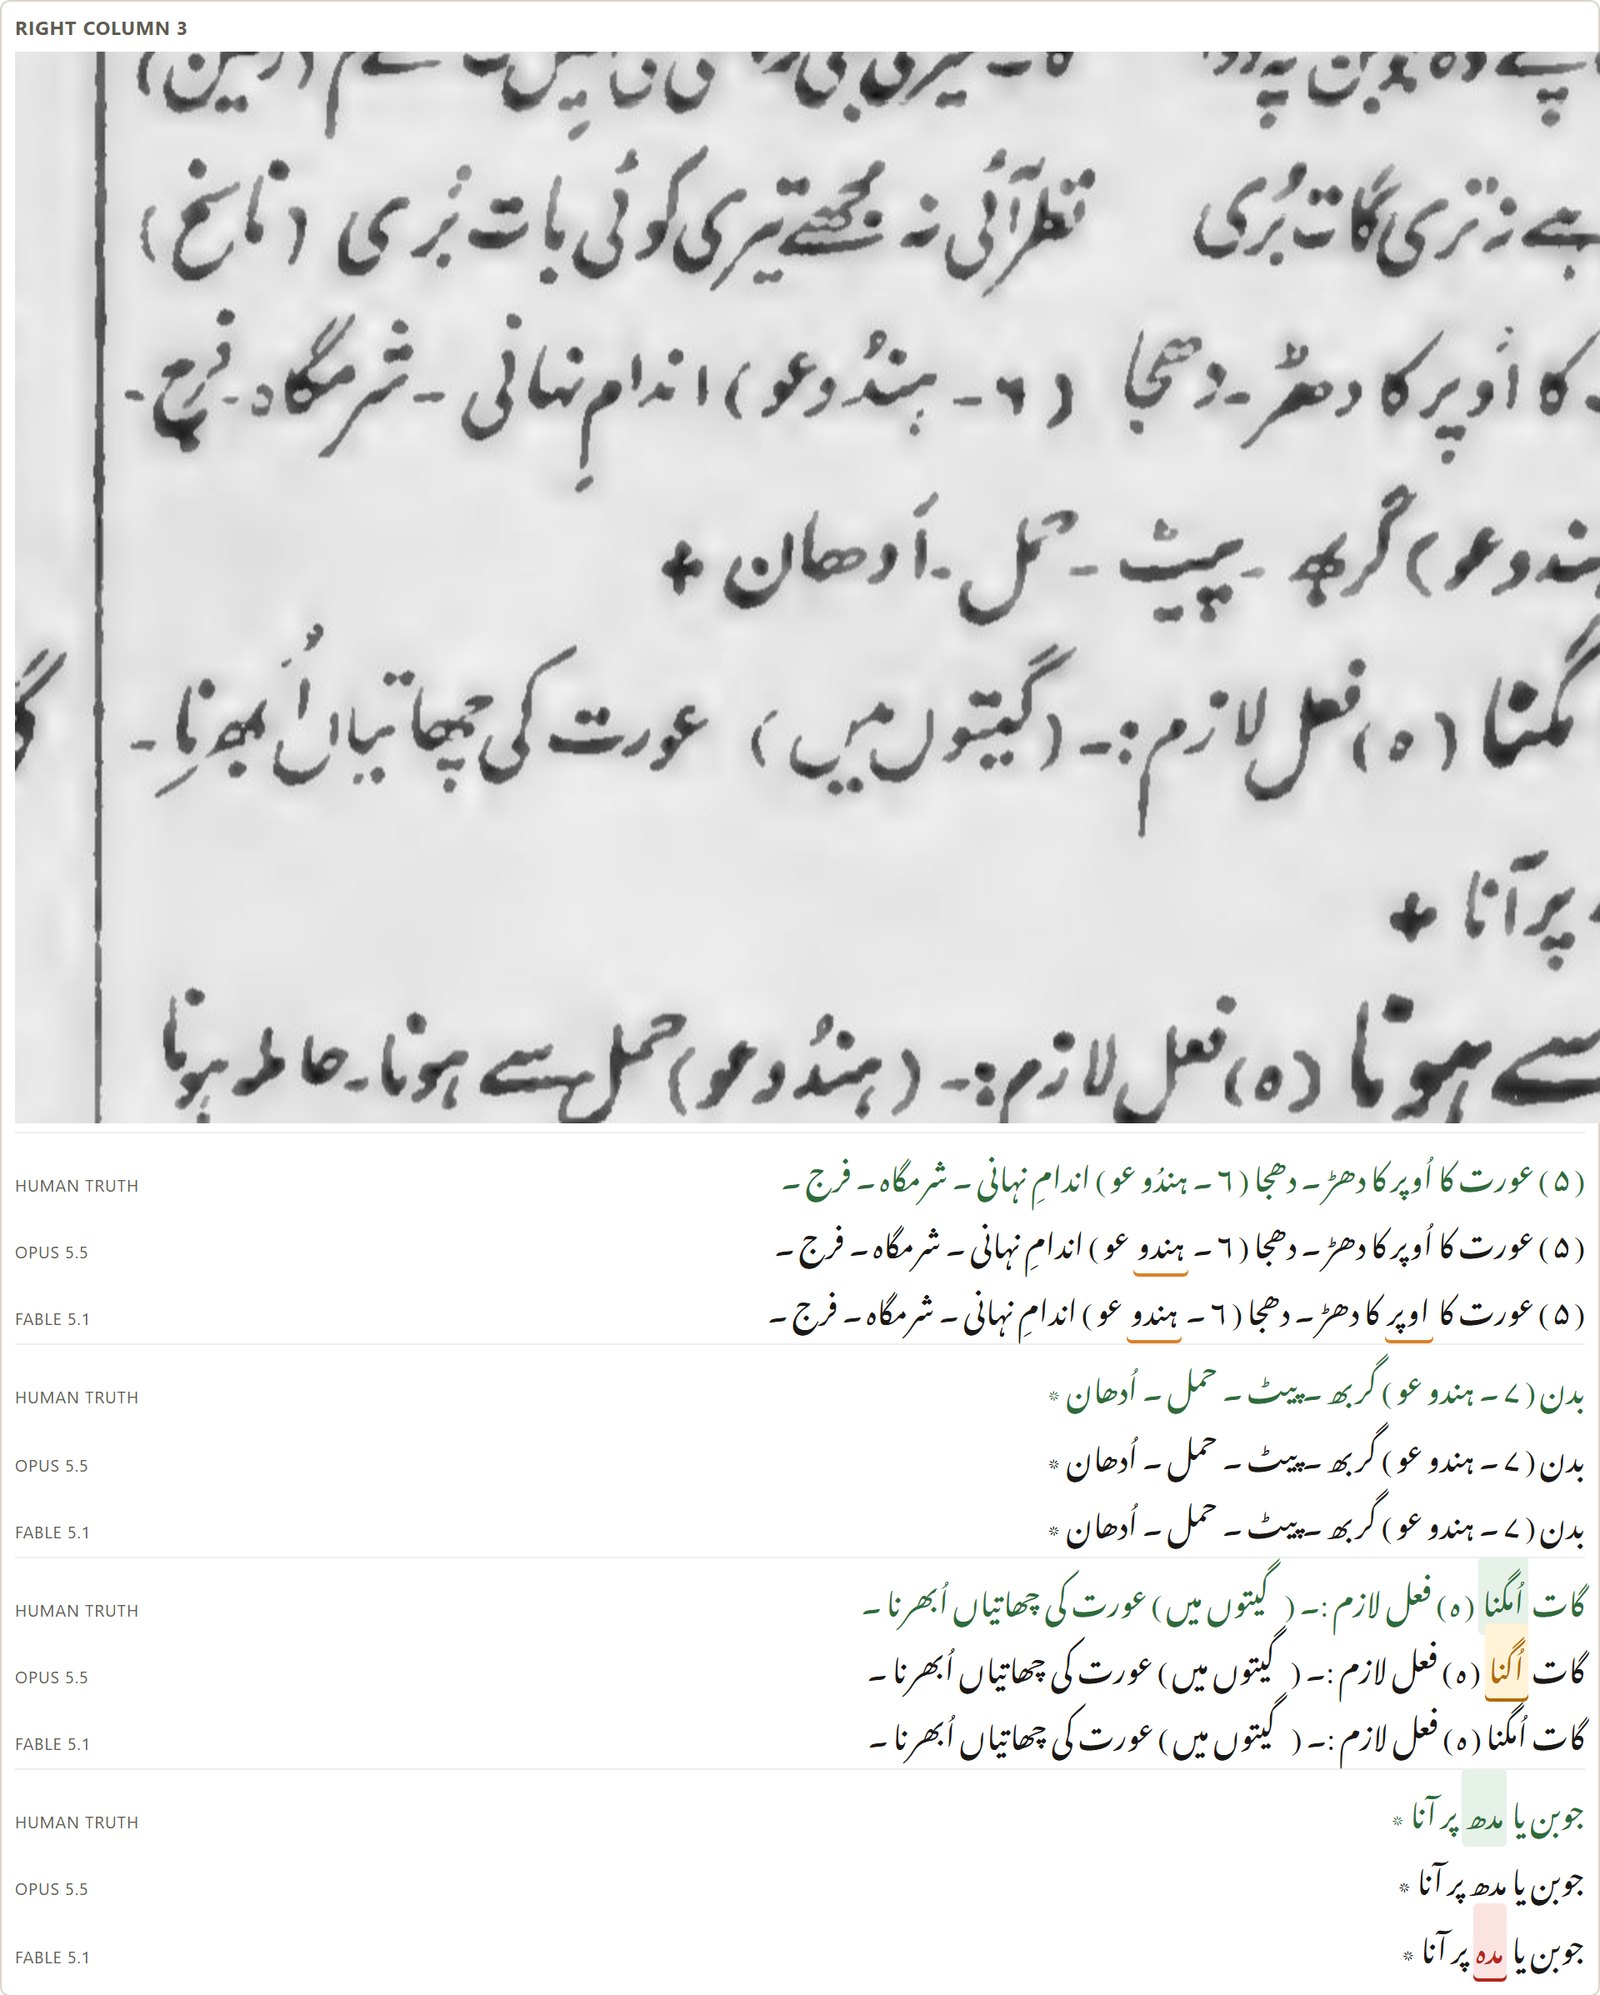 RIGHT COLUMN 3
ہے نہ تری گات بُری نظر آئی نہ مجھے تیری کوئی بات بُری (ناسخ)
کا اُوپر کا دھڑ۔ دھجا (٦۔ ہندُو عو) اندامِ نہانی۔ شرمگاہ۔ فرج۔
ہندو عو) گربھ۔ پیٹ۔ حمل۔ اَدھان +
مگنا (ہ) فعل لازم:۔ (گیتوں میں) عورت کی چھاتیاں اُبھرنا۔
پر آنا +
سے ہونا (ہ) فعل لازم:۔ (ہندُو عو) حمل سے ہونا۔ حاملہ ہونا
HUMAN TRUTH
(٥) عورت کا اُوپر کا دھڑ ۔ دھجا (٦ ۔ ہندُو عو) اندامِ نہانی ۔ شرمگاہ ۔ فرج ۔
OPUS 5.5
(٥) عورت کا اُوپر کا دھڑ ۔ دھجا (٦ ۔ ہندو عو) اندامِ نہانی ۔ شرمگاہ ۔ فرج ۔
FABLE 5.1
(٥) عورت کا اوپر کا دھڑ ۔ دھجا (٦ ۔ ہندو عو) اندامِ نہانی ۔ شرمگاہ ۔ فرج ۔
HUMAN TRUTH
بدن (٧ ۔ ہندو عو) گربھ ۔ پیٹ ۔ حمل ۔ اُدھان ※
OPUS 5.5
بدن (٧ ۔ ہندو عو) گربھ ۔ پیٹ ۔ حمل ۔ اُدھان ※
FABLE 5.1
بدن (٧ ۔ ہندو عو) گربھ ۔ پیٹ ۔ حمل ۔ اُدھان ※
HUMAN TRUTH
گات اُمگنا (ہ) فعل لازم :۔ (گیتوں میں) عورت کی چھاتیاں اُبھرنا ۔
OPUS 5.5
گات اُگنا (ہ) فعل لازم :۔ (گیتوں میں) عورت کی چھاتیاں اُبھرنا ۔
FABLE 5.1
گات اُمگنا (ہ) فعل لازم :۔ (گیتوں میں) عورت کی چھاتیاں اُبھرنا ۔
HUMAN TRUTH
جوبن یا مدھ پر آنا ※
OPUS 5.5
جوبن یا مدھ پر آنا ※
FABLE 5.1
جوبن یا مدہ پر آنا ※